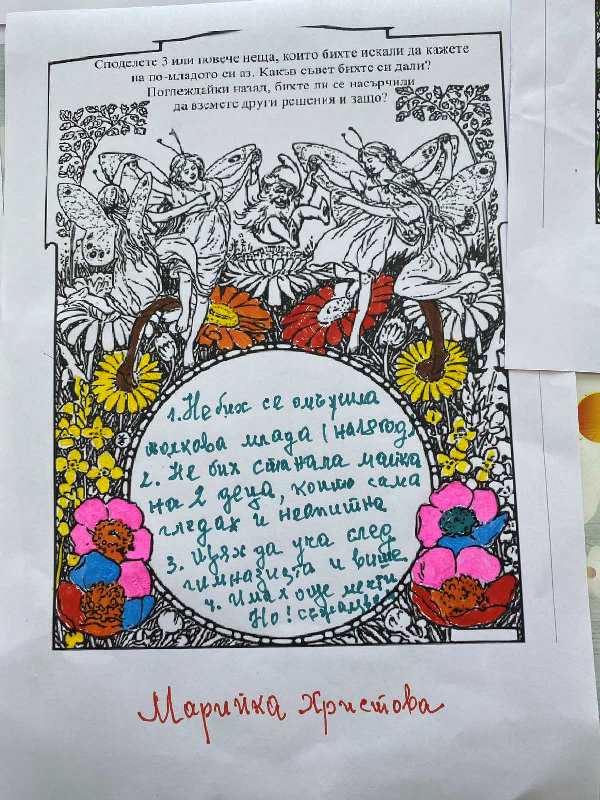 Споделете 3 или повече неща, които бихте искали да кажете
на по-младото си аз. Какъв съвет бихте си дали?
Поглеждайки назад, бихте ли се насърчили
да вземете други решения и защо?
1. Не бих се омъжила
толкова млада (на 18 год.
2. Не бих станала майка
на 2 деца, които сама
гледах и неопитна
3. Щях да уча след
гимназията и више
4. Имах още мечти
Но!
Марийка Христова